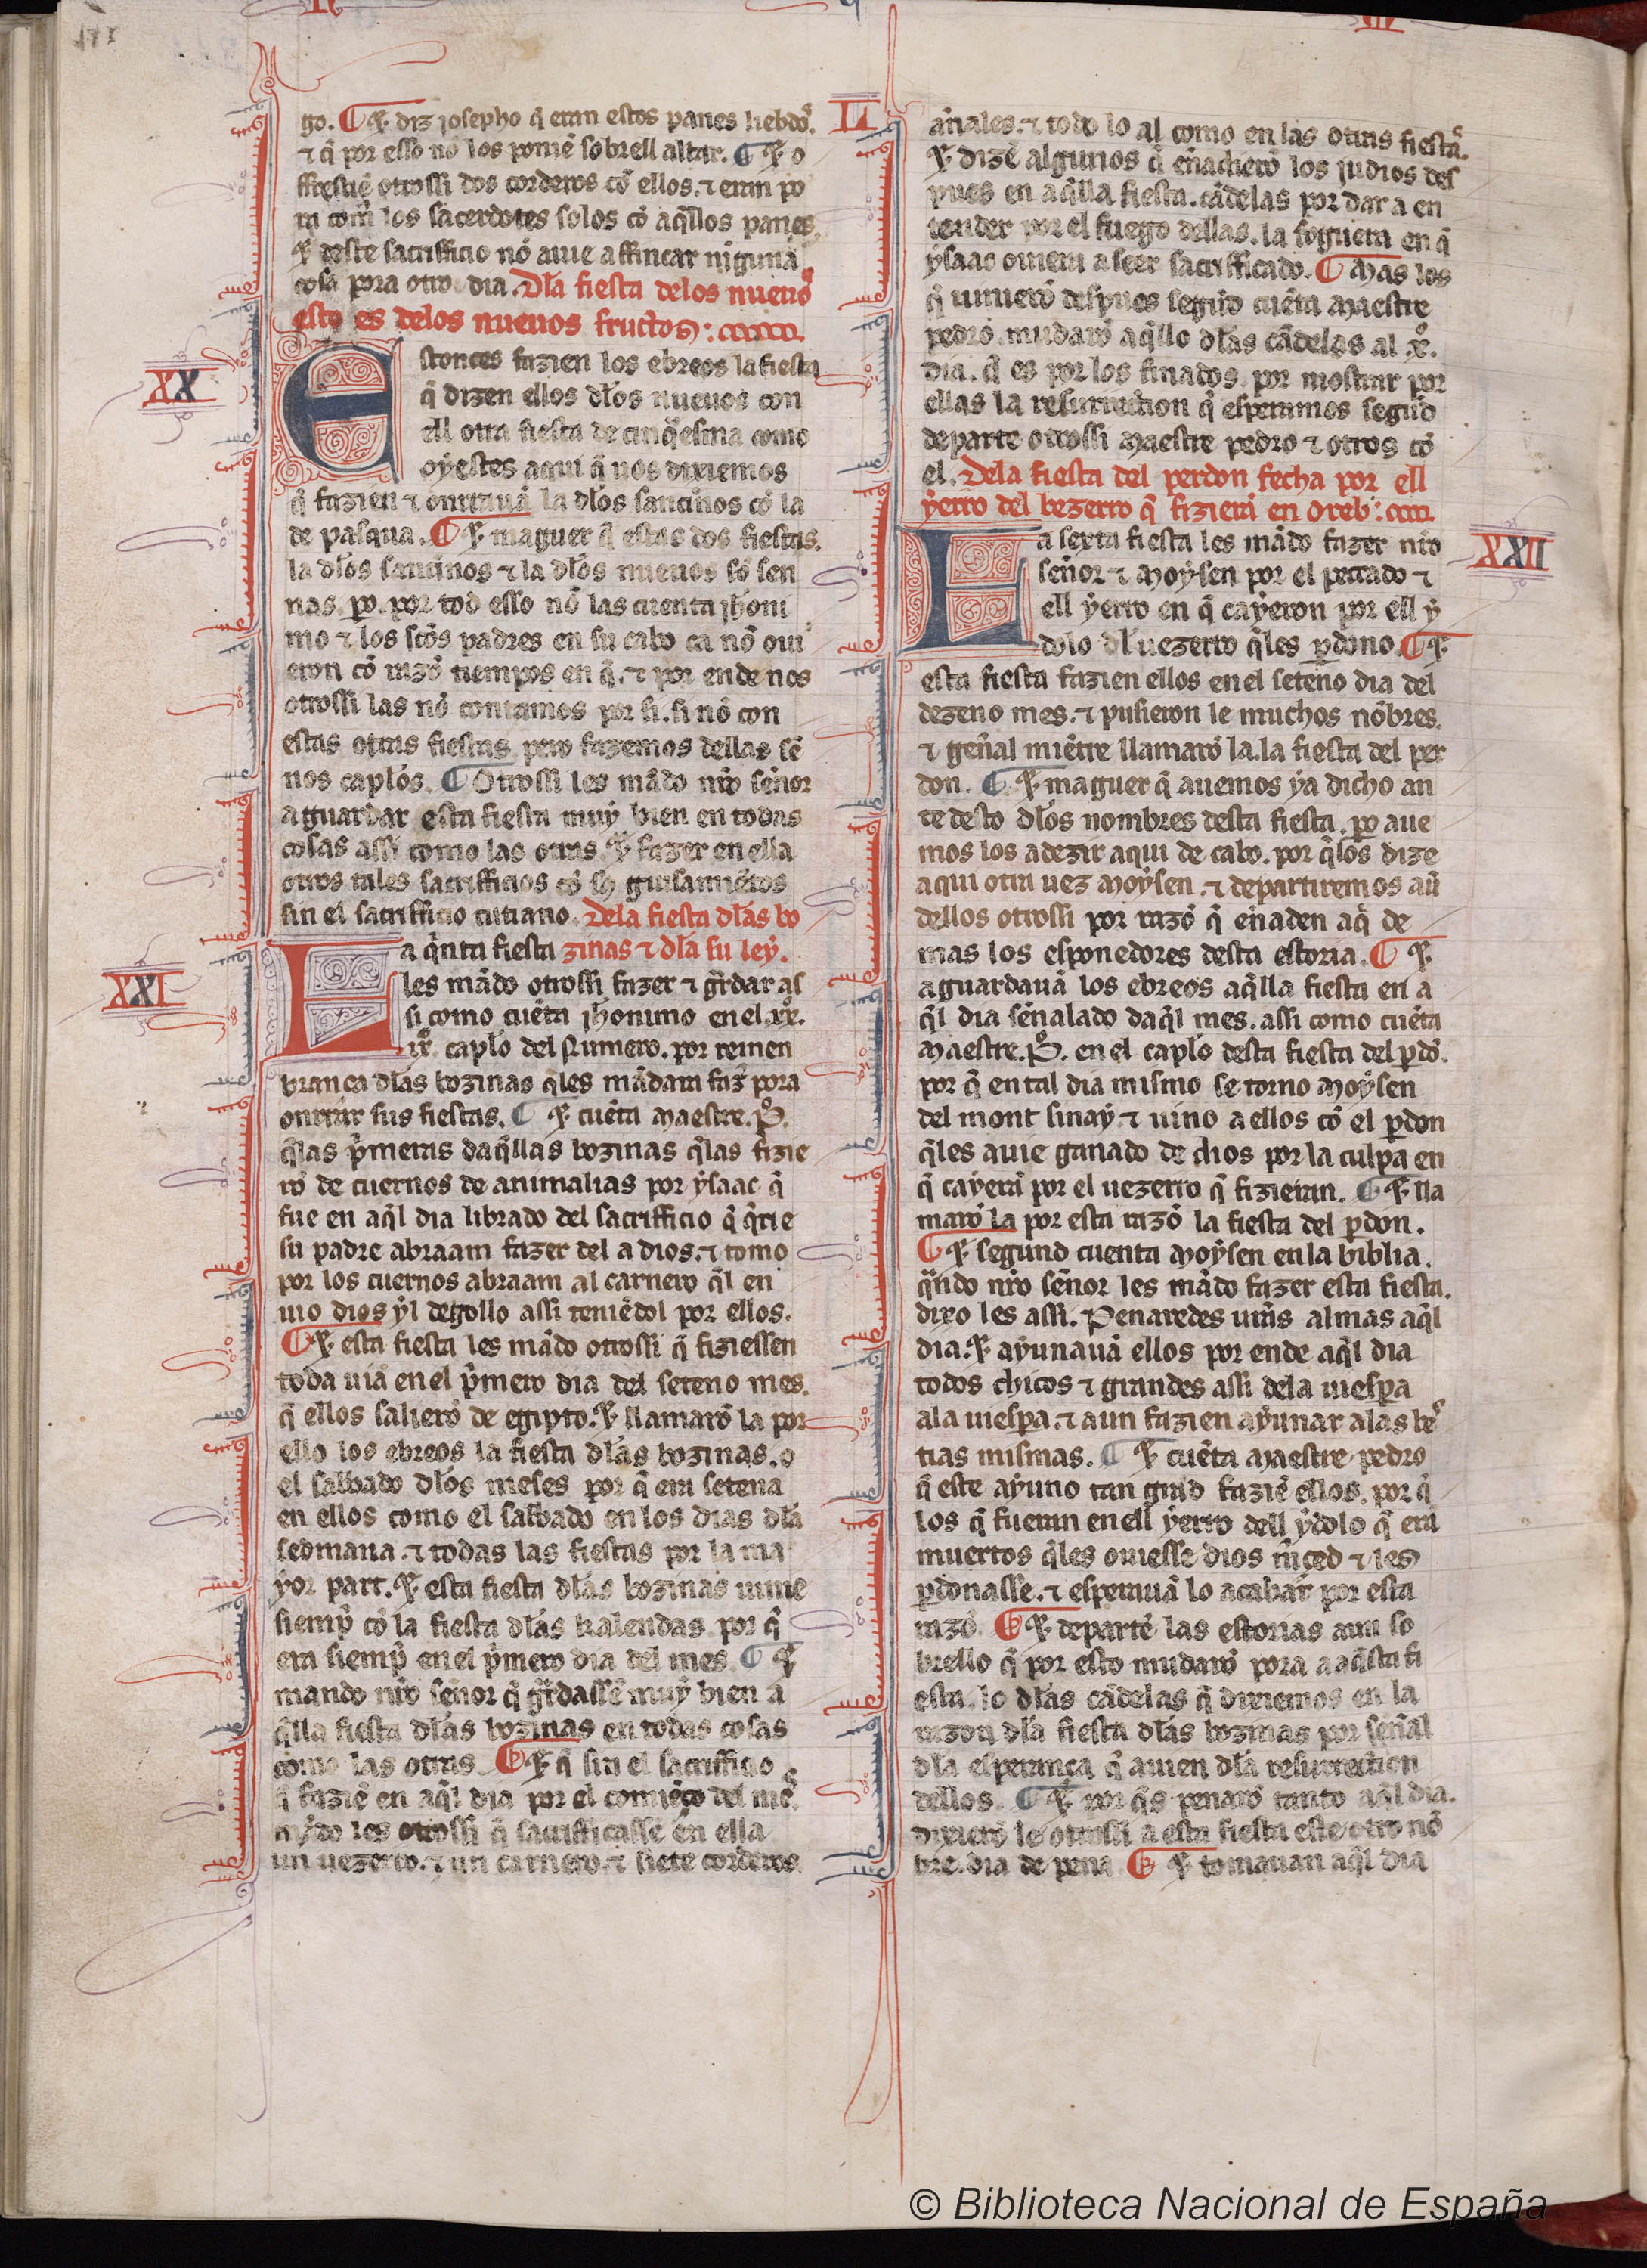 go. ¶ Et diz josepho q̃ eran estos panes hebdoˢ.
⁊ q̃ por esso nõ los poniẽ sobrell altar. ¶ Et o
ffresciẽ otrossi dos corderos cõ ellos. ⁊ eran po
ra com̃ los sacerdotes solos cõ aq̃llos panes
Et deste sacrifficio nõ auie a ffincar njguna
cosa pora otro dia. Dla fiesta delos nueuoˢ
esto es delos nueuos fructos:
XX
Estonces fazien los ebreos la fiesta
q̃ dizen ellos dlos nueuos con
ell otra fiesta de cinq̃esma como
oyestes aqui q̃ uos dixiemos
q̃ fazien ⁊ onrrauã la dlos sancinos cõ la
de pasqua. ¶ Et maguer q̃ estas dos fiestas.
la dlos sancinos ⁊ la dlos nueuos sõ sen
nas. po. por tod esso nõ las cuenta jhoni
mo ⁊ los sc̃os padres en su cabo ca nõ oui
eron cõ razõ tiempos en q̃. ⁊ por ende nos
otrossi las nõ contamos por si. si nõ con
estas otras fiestas pero fazemos dellas sẽ
nos caplos. ¶ Otrossi les mãdo nr̃o sẽnor
aguardar esta fiesta muy bien en todas
cosas assi como las otras. Et fazer en ella
otros tales sacrifficios cõ sꝯ guisamiẽtos
sin el sacrifficio cutiano. Dela fiesta dlas bo
XXI
La q̃nta fiesta zinas ⁊ dla su ley.
les mãdo otrossi fazer ⁊ gr̃dar as
si como cuẽta jhonimo en el .xx.
ix. caplo del Numero. por remen
branca dlas bozinas q̃les mãdara faz̃ pora
onrrar sus fiestas. ¶ Et cuẽta maestre .P̊.
q̃las p̃meras daq̃llas bozinas q̃las fizie
rõ de cuernos de animalias por ysaac q̃
fue en aq̃l dia librado del sacrifficio q̃ q̃rie
su padre abraam fazer del a dios. ⁊ tomo
por los cuernos abraam al carnero q̃l en
uio dios yl degollo assi teniẽdol por ellos.
¶ Et esta fiesta les mãdo otrossi q̃ fiziessen
toda uiã en el p̃mero dia del seteno mes.
q̃ ellos salierõ de egipto. Et llamarõ la por
ello los ebreos la fiesta dlas bozinas. o
el sabbado dlos meses por q̃ era setena
en ellos como el sabbado en los dias dla
sedmana. ⁊ todas las fiestas por la ma
yor part. Et esta fiesta dlas bozinas uinie
siemp̃ cõ la fiesta dlas kalendas. por q̃
era siemp̃ en el p̃mero dia del mes. ¶ Et
mando nr̃o señor q̃ gr̃dassẽ muy bien a
q̃lla fiesta dlas bozinas en todas cosas
como las otras. ¶ Et q̃ sin el sacrifficio
q̃ faziẽ en aq̃l dia por el comiẽço del meˢ
mãdo les otrossi q̃ sacrificassẽ en ella
un uezerro. ⁊ un carnero. ⁊ siete corderos
L
añales. ⁊ todo lo al como en las otras fiestaˢ.
Et dizẽ algunos q̃ eñadierõ los judios des
pues en aq̃lla fiesta. cãdelas por dar a en
tender por el fuego dellas. la foguera en q̃
ysaac ouiera a seer sacrifficado. ¶ Mas los
q̃ uinierõ despues segũd cuẽta maestre
pedro. mudarõ aq̃llo dlas cãdelas al .x̊.
dia. q̃ es por los finados. por mostrar por
ellas la resurrection q̃ esperamos segũd
departe otrossi maestre pedro ⁊ otros cõ
el. Dela fiesta del perdon fecha por ell
yerro del bezerro q̃ fiziera en oreb:
XXII
La sexta fiesta les mãdo fazer nr̃o
señor ⁊ Moysen por el peccado ⁊
ell yerro en q̃ cayeron por ell y
dolo dl uezerro q̃les p̱dono. ¶ Et
esta fiesta fazien ellos en el seteno dia del
dezeno mes. ⁊ pusieron le muchos nõbres.
⁊ geñal miẽtre llamarõ la. la fiesta del per
don. ¶ Et maguer q̃ auemos ya dicho an
te desto dlos nombres desta fiesta. po aue
mos los a dezir aqui de cabo. por q̃los dize
aqui otra uez Moysen. ⁊ departiremos aũ
dellos otrossi por razõ q̃ eñaden aq̃ de
mas los esponedores desta estoria. ¶ Et
aguardauã los ebreos aq̃lla fiesta en a
q̃l dia señalado daq̃l mes. assi como cuẽta
Maestre .P̊. en el caplo desta fiesta del p̱dõ.
por q̃ en tal dia mismo se torno Moysen
del mont sinay ⁊ uino a ellos cõ el p̱don
q̃les auie ganado de dios por la culpa en
q̃ cayerã por el uezerro q̃ fizieran. ¶ Et lla
marõ la por esta razõ la fiesta del p̱don.
¶ Et segund cuenta Moysen en la biblia.
qñdo nr̃o señor les mãdo fazer esta fiesta.
dixo les assi. Penaredes ur̃as almas aq̃l
dia. Et ayunauã ellos por ende aq̃l dia
todos chicos ⁊ grandes assi dela uiesp̱a
ala uiesp̱a. ⁊ aun fazien ayunar alas beˢ
tias mismas. ¶ Et cuẽta maestre pedro
q̃ este ayuno tan grãd faziẽ ellos. por q̃
los q̃ fueran en ell yerro dell ydolo q̃ erã
muertos q̃les ouiesse dios m̃ced ⁊ les
p̱donasse. ⁊ esperauã lo acabar por esta
razõ. ¶ Et departẽ las estorias aun so
brello q̃ por esto mudarõ pora a aq̃sta fi
esta. lo dlas cãdelas q̃ dixiemos en la
razon dla fiesta dlas bozinas por señal
dla esperança q̃ auien dla resurrection
dellos. ¶ Et por q̃s penarõ tanto aq̃l dia.
dixierõ le otrossi a esta fiesta este otro nõ
bre. dia de pena. ¶ Et tomauan aq̃l dia
© Biblioteca Nacional de España